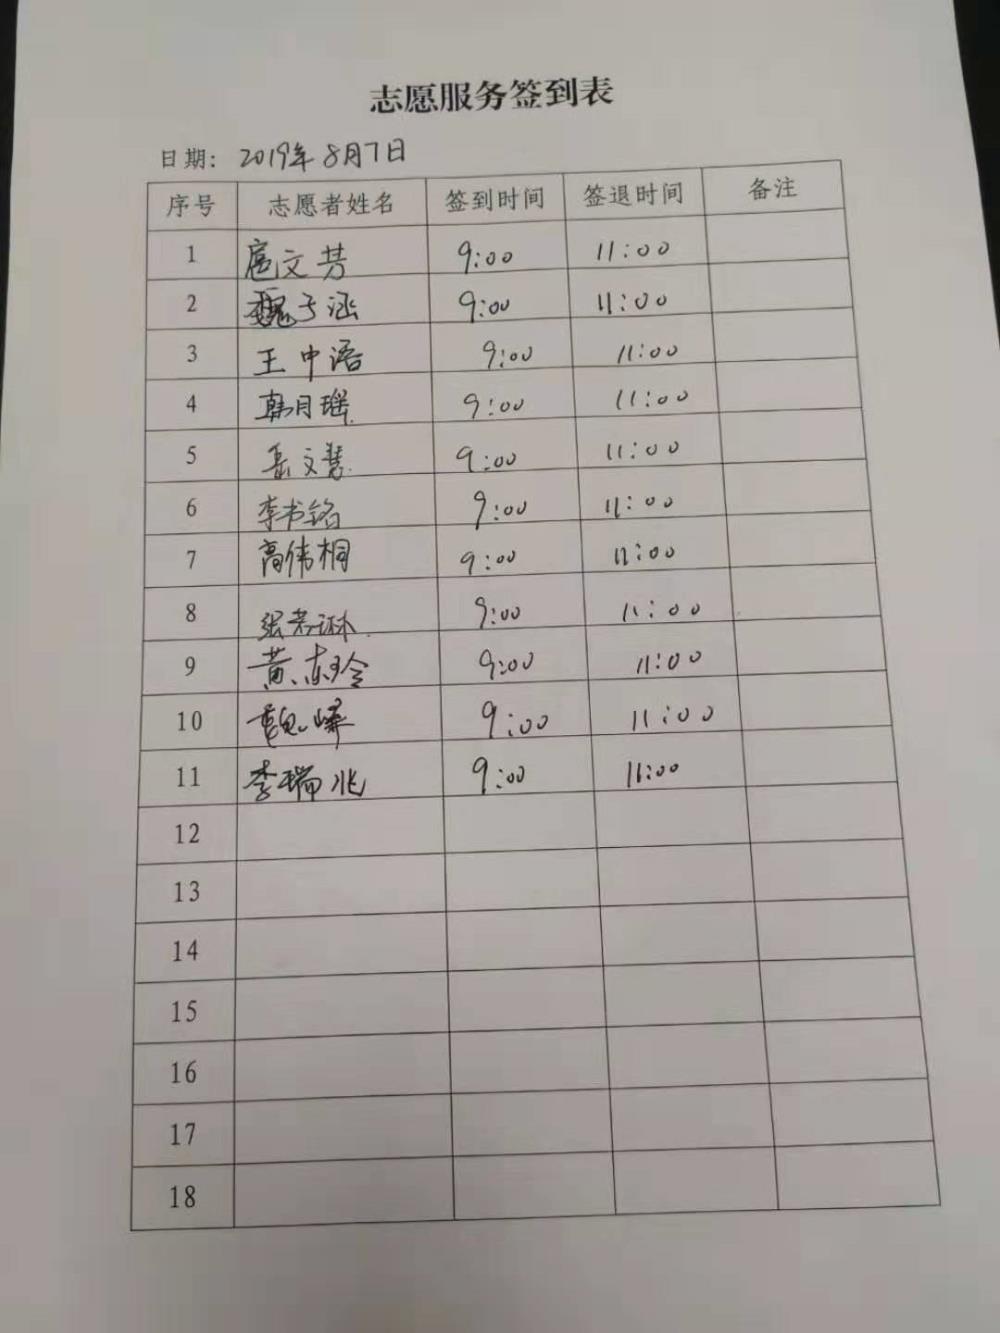 志愿服务签到表
日期: 2019年8月7日
序号 志愿者姓名 签到时间 签退时间 备注
1 扈文芳 9:00 11:00
2 魏子涵 9:00 11:00
3 王中语 9:00 11:00
4 韩月瑶 9:00 11:00
5 岳文慧 9:00 11:00
6 李书铭 9:00 11:00
7 高伟桐 9:00 11:00
8 9:00 11:00
9 9:00 11:00
10 9:00 11:00
11 李瑞兆 9:00 11:00
12
13
14
15
16
17
18